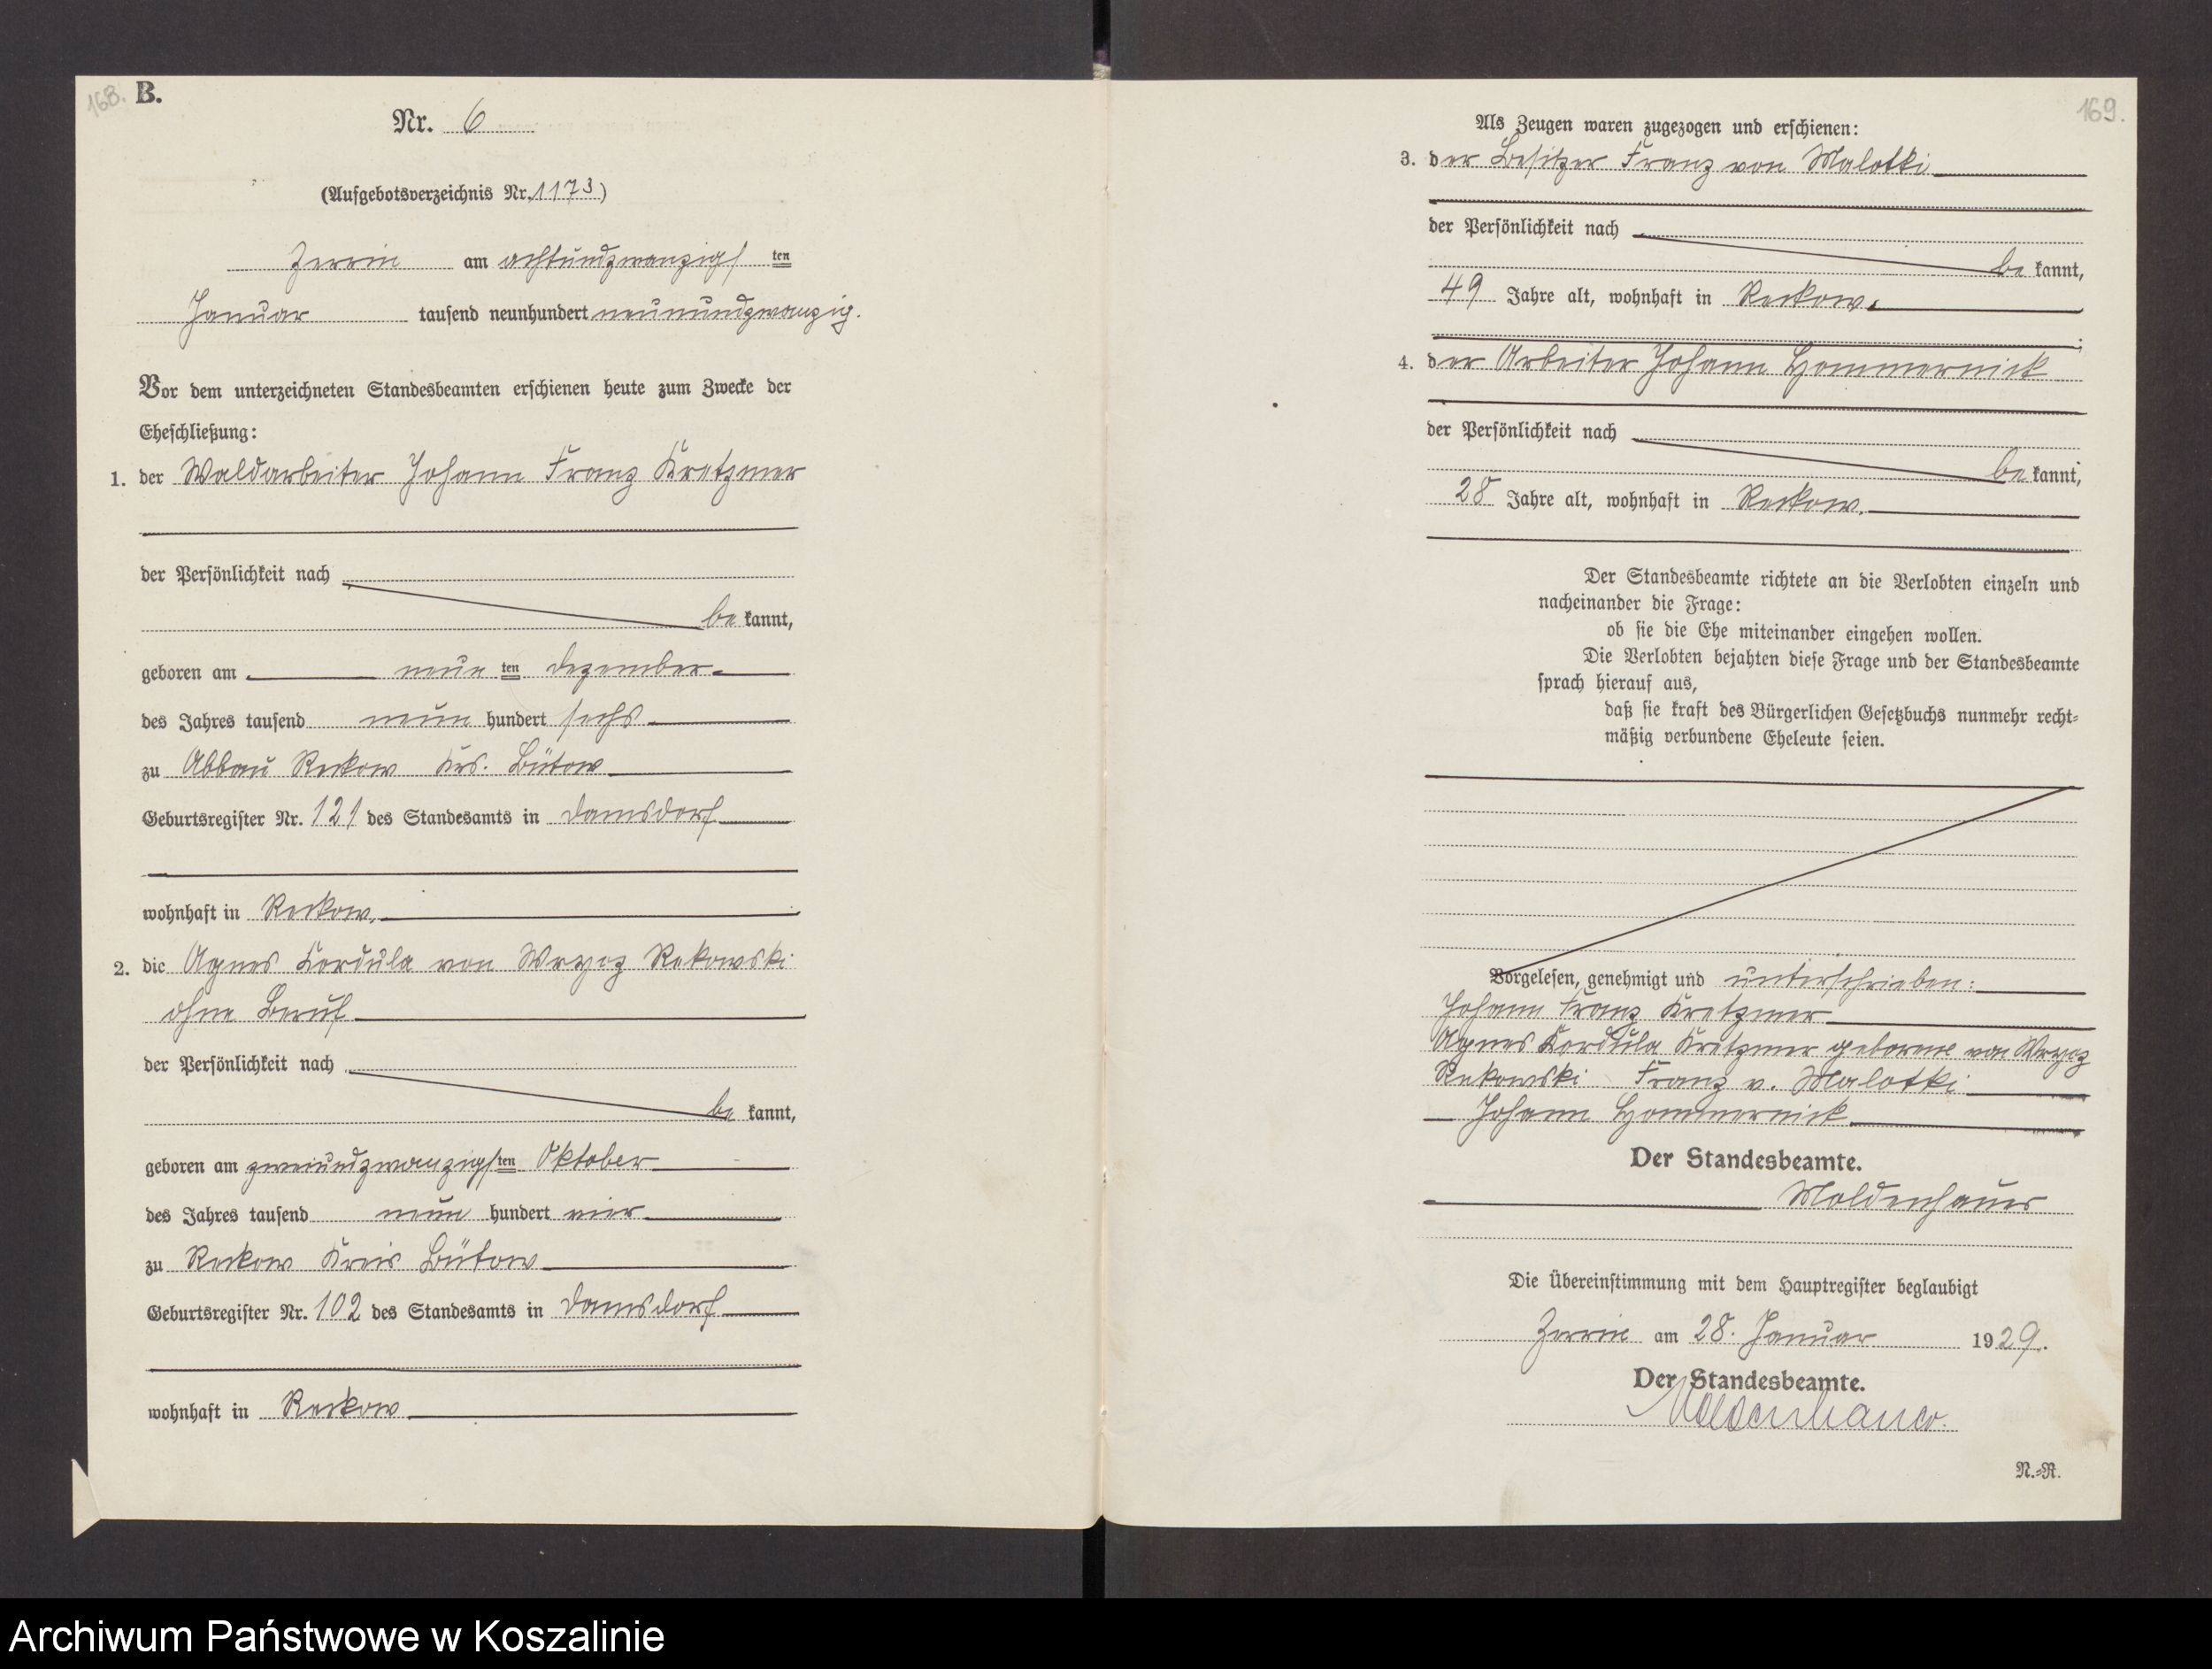 168. B.
Nr. 6
(Aufgebotsverzeichnis Nr. 1173)
Zerrin am achtundzwanzigsten
Januar tausend neunhundert neunundzwanzig.
Vor dem unterzeichneten Standesbeamten erschienen heute zum Zwecke der
Eheschließung:
1. der Waldarbeiter Johann Franz Kretzmer
der Persönlichkeit nach
be kannt,
geboren am neun ten Dezember
des Jahres tausend neun hundert sechs
zu Abbau Reckow Krs. Bütow
Geburtsregister Nr. 121 des Standesamts in Damsdorf
wohnhaft in Reckow,
2. die Agnes Kordula von Wrycz Rekowski
ohne Beruf
der Persönlichkeit nach
be kannt,
geboren am zweiundzwanzigsten Oktober
des Jahres tausend neun hundert vier
zu Reckow Kreis Bütow
Geburtsregister Nr. 102 des Standesamts in Damsdorf
wohnhaft in Reckow
169.
Als Zeugen waren zugezogen und erschienen:
3. der Besitzer Franz von Malotki
der Persönlichkeit nach
be kannt,
49 Jahre alt, wohnhaft in Reckow,
4. der Arbeiter Johann Hommernick
der Persönlichkeit nach
be kannt,
28 Jahre alt, wohnhaft in Reckow.
Der Standesbeamte richtete an die Verlobten einzeln und
nacheinander die Frage:
ob sie die Ehe miteinander eingehen wollen.
Die Verlobten bejahten diese Frage und der Standesbeamte
sprach hierauf aus,
daß sie kraft des Bürgerlichen Gesetzbuchs nunmehr recht-
mäßig verbundene Eheleute seien.
Vorgelesen, genehmigt und unterschrieben:
Johann Franz Kretzmer
Agnes Kordula Kretzmer geborene von Wrycz
Rekowski Franz v. Malotki
Johann Hommernick
Der Standesbeamte.
Moldenhauer
Die Übereinstimmung mit dem Hauptregister beglaubigt
Zerrin am 28. Januar 1929.
Der Standesbeamte.
Moldenhauer.
N.-R.
Archiwum Państwowe w Koszalinie